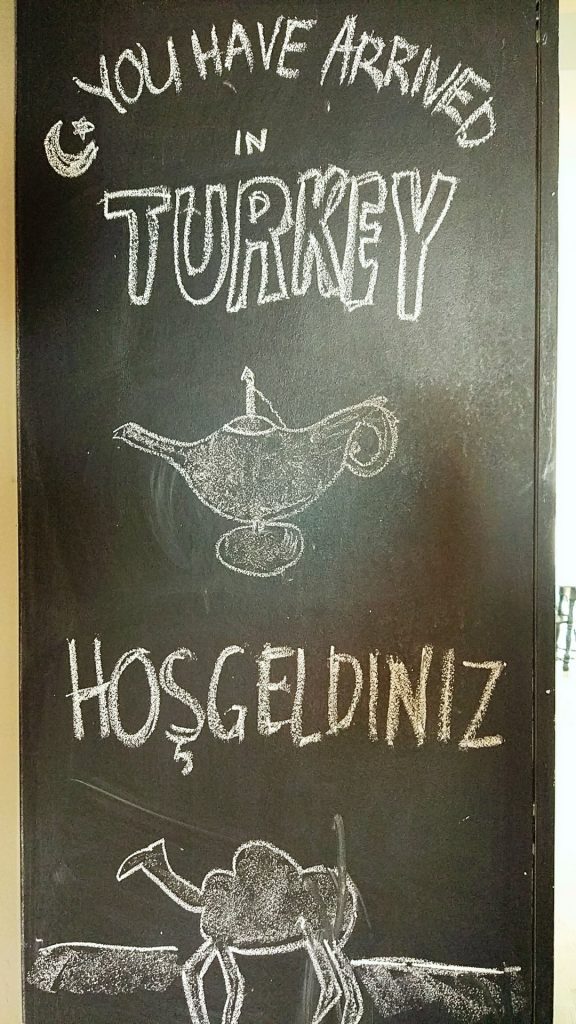 YOU HAVE ARRIVED
IN
TURKEY
HOŞGELDINIZ